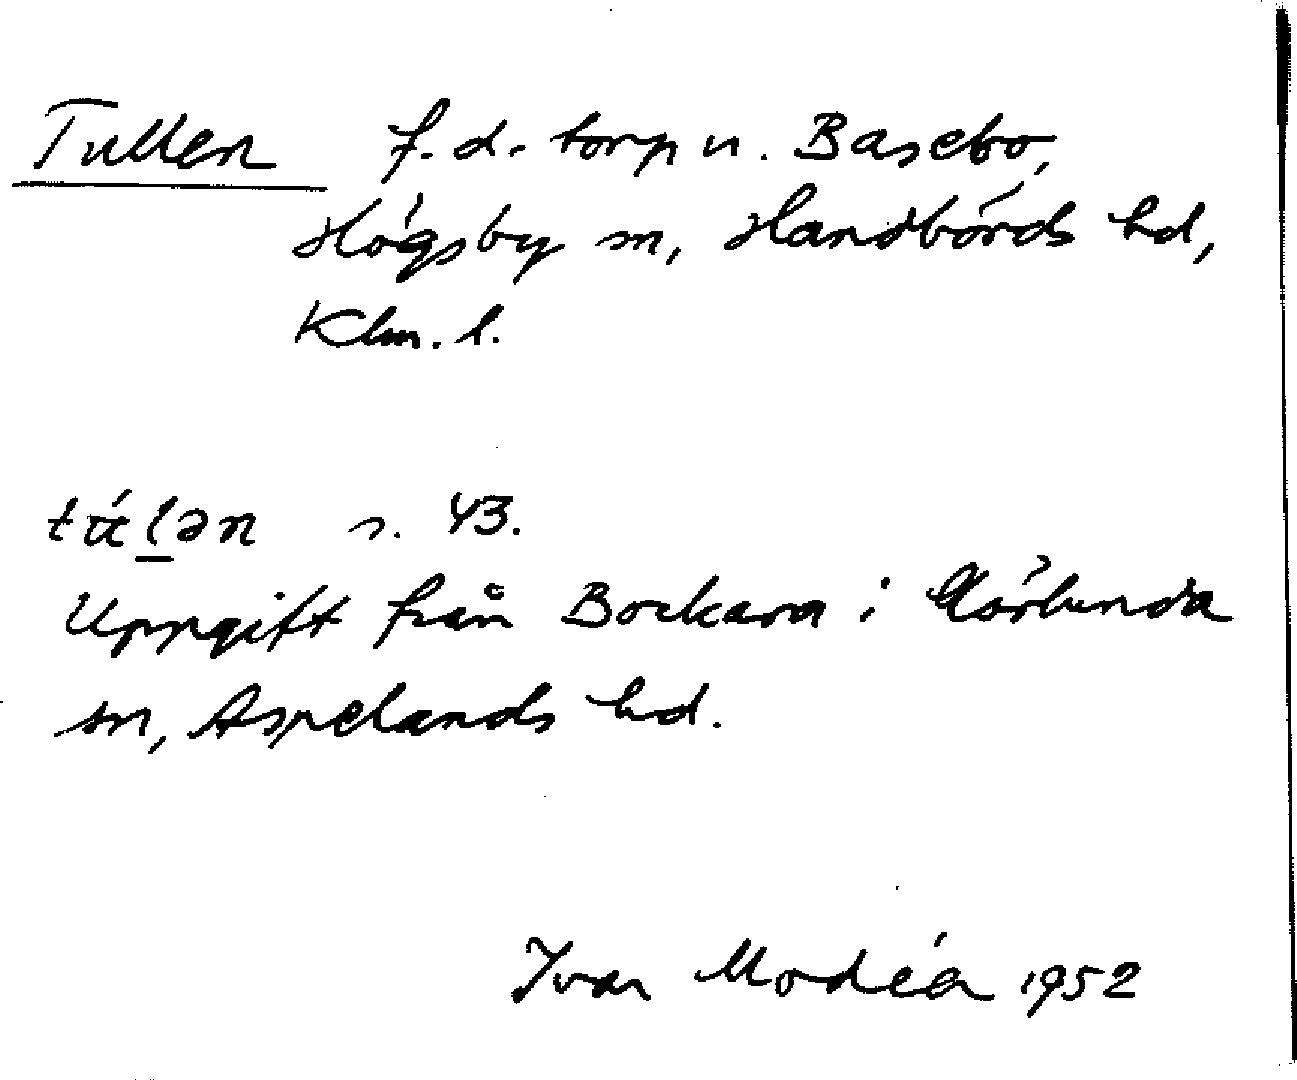 Tullen f.d. torp u. Basebo,
Högsby sn, Handbörds hd,
Klm. l.
tú̵l̲ən s. 43.
Uppgift från Bockara i Görlunda
sn, Aspelands hd.
Ivar Modéer 1952